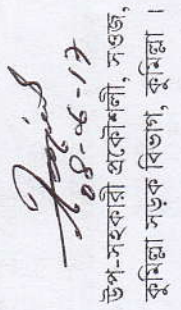 ০৪-৬-১৭
উপ-সহকারী প্রকৌশলী, সওজ,
কুমিল্লা সড়ক বিভাগ, কুমিল্লা ।